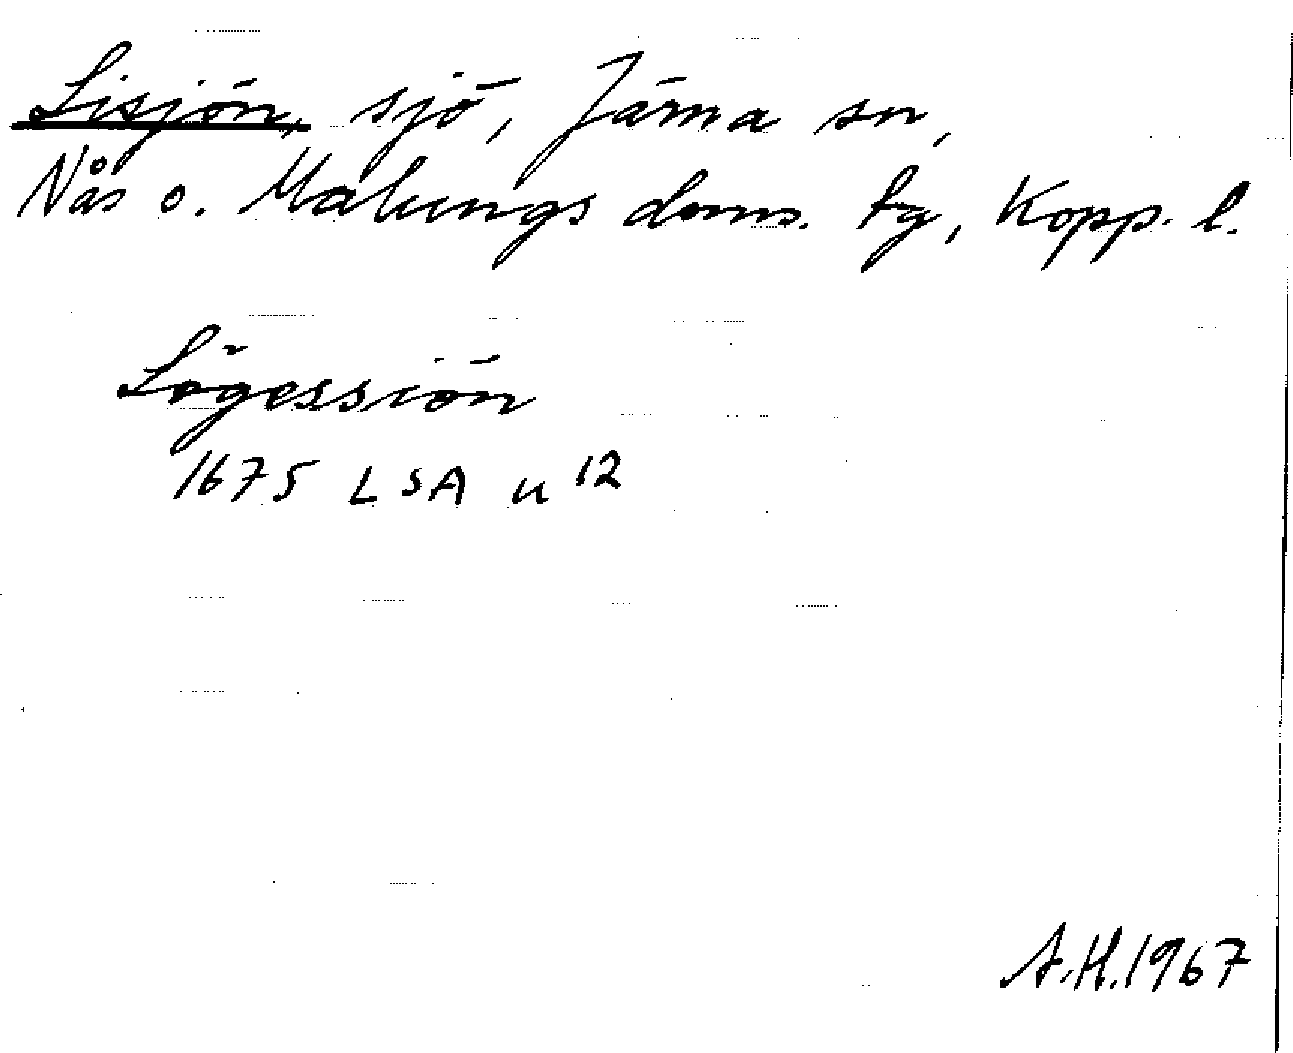 Lisjön, sjö, Järna sn,
Nås o. Malungs doms. tg, Kopp. l.
Lögessiön
1675 LSA u 12
A.H. 1967